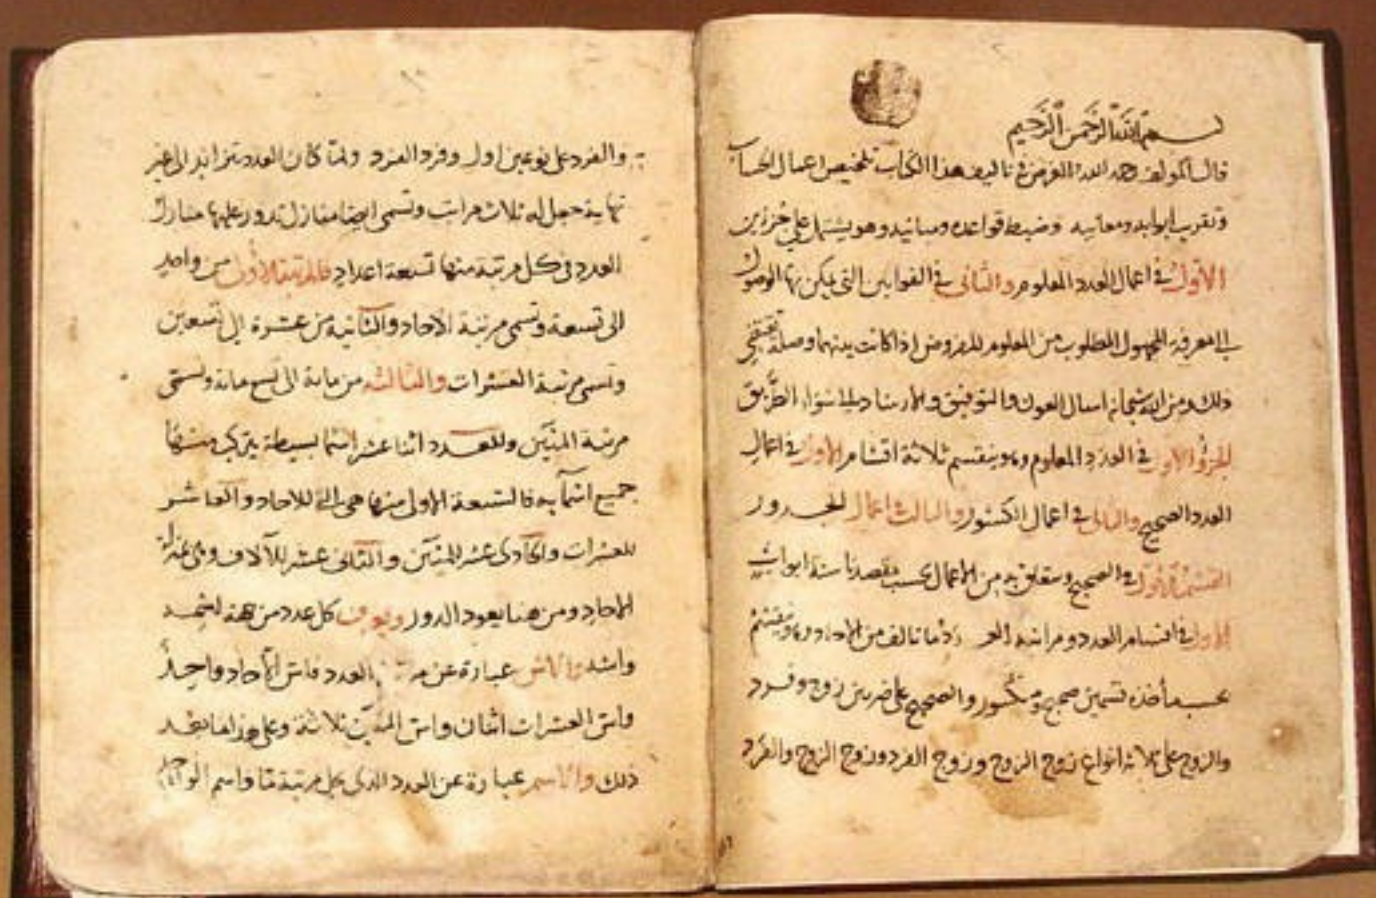 بسم الله الرحمن الرحيم
قال المولف رحمه الله الغرض في تاليف هذا الكتاب تلخيص اعمال الحساب
وتقريب ابوابه ومعانيه وضبط قواعده ومبانيه وهو يشتمل علي جزئين
الأول في اعمال العدد المعلوم والثاني في القوانين التي يمكن بها الوصول
الى معرفة المجهول المطلوب من المعلوم المفروض اذا كانت بينهما وصلة تقتضي
ذلك ومن الله سبحانه اسال العون والتوفيق والارشاد الى سواء الطريق
الجزؤ الأول في العدد المعلوم وهو ينقسم ثلاثة اقسام الأول في اعمال
العدد الصحيح والثاني في اعمال الكسور والثالث اعمال الجدور
القسم الأول في الصحيح وتتعلق به من الاعمال بحسب مقصدنا ستة ابواب
الأول في اقسام العدد ومراتبه العدد ما تالف من الاحاد وهو ينقسم
بحسب مأخذه قسمين صحيح ومكسور والصحيح على ضربين زوج وفرد
والزوج على ثلاثه انواع زوج الزوج وزوج الفرد وزوج الزوج والفرد
والفرد على نوعين اول وفرد الفرد ولما كان العدد يتزايد الى غير
نهاية جعل له ثلاث مراتب وتسمى ايضا منازل تدور عليها منازل
العدد في كل مرتبة منها تسعة اعداد فالمرتبة الأولى من واحد
الى تسعة وتسمى مرتبة الآحاد والثانية من عشرة الى تسعين
وتسمى مرتبة العشرات والثالثة من مائة الى تسع مائة وتسمى
مرتبة المئين وللعدد اثنا عشر اسما بسيطة يتركب منها
جميع اسمآيه فالتسعة الاولى منها هي التي للاحاد والعاشر
للعشرات والحادى عشر للمئين والثاني عشر للآلاف وهي بمنزلة
الاحاد ومن هنا يعود الدور ويعرف كل عدد من هذه باسمه
واسه والاس عبارة عن مرتبة العدد فاس الآحاد واحد
واس العشرات اثنان واس المئين ثلاثة وعلى هذا فما بعد
ذلك والاسم عبارة عن العدد الذى بكل مرتبة ما واسم الواحد